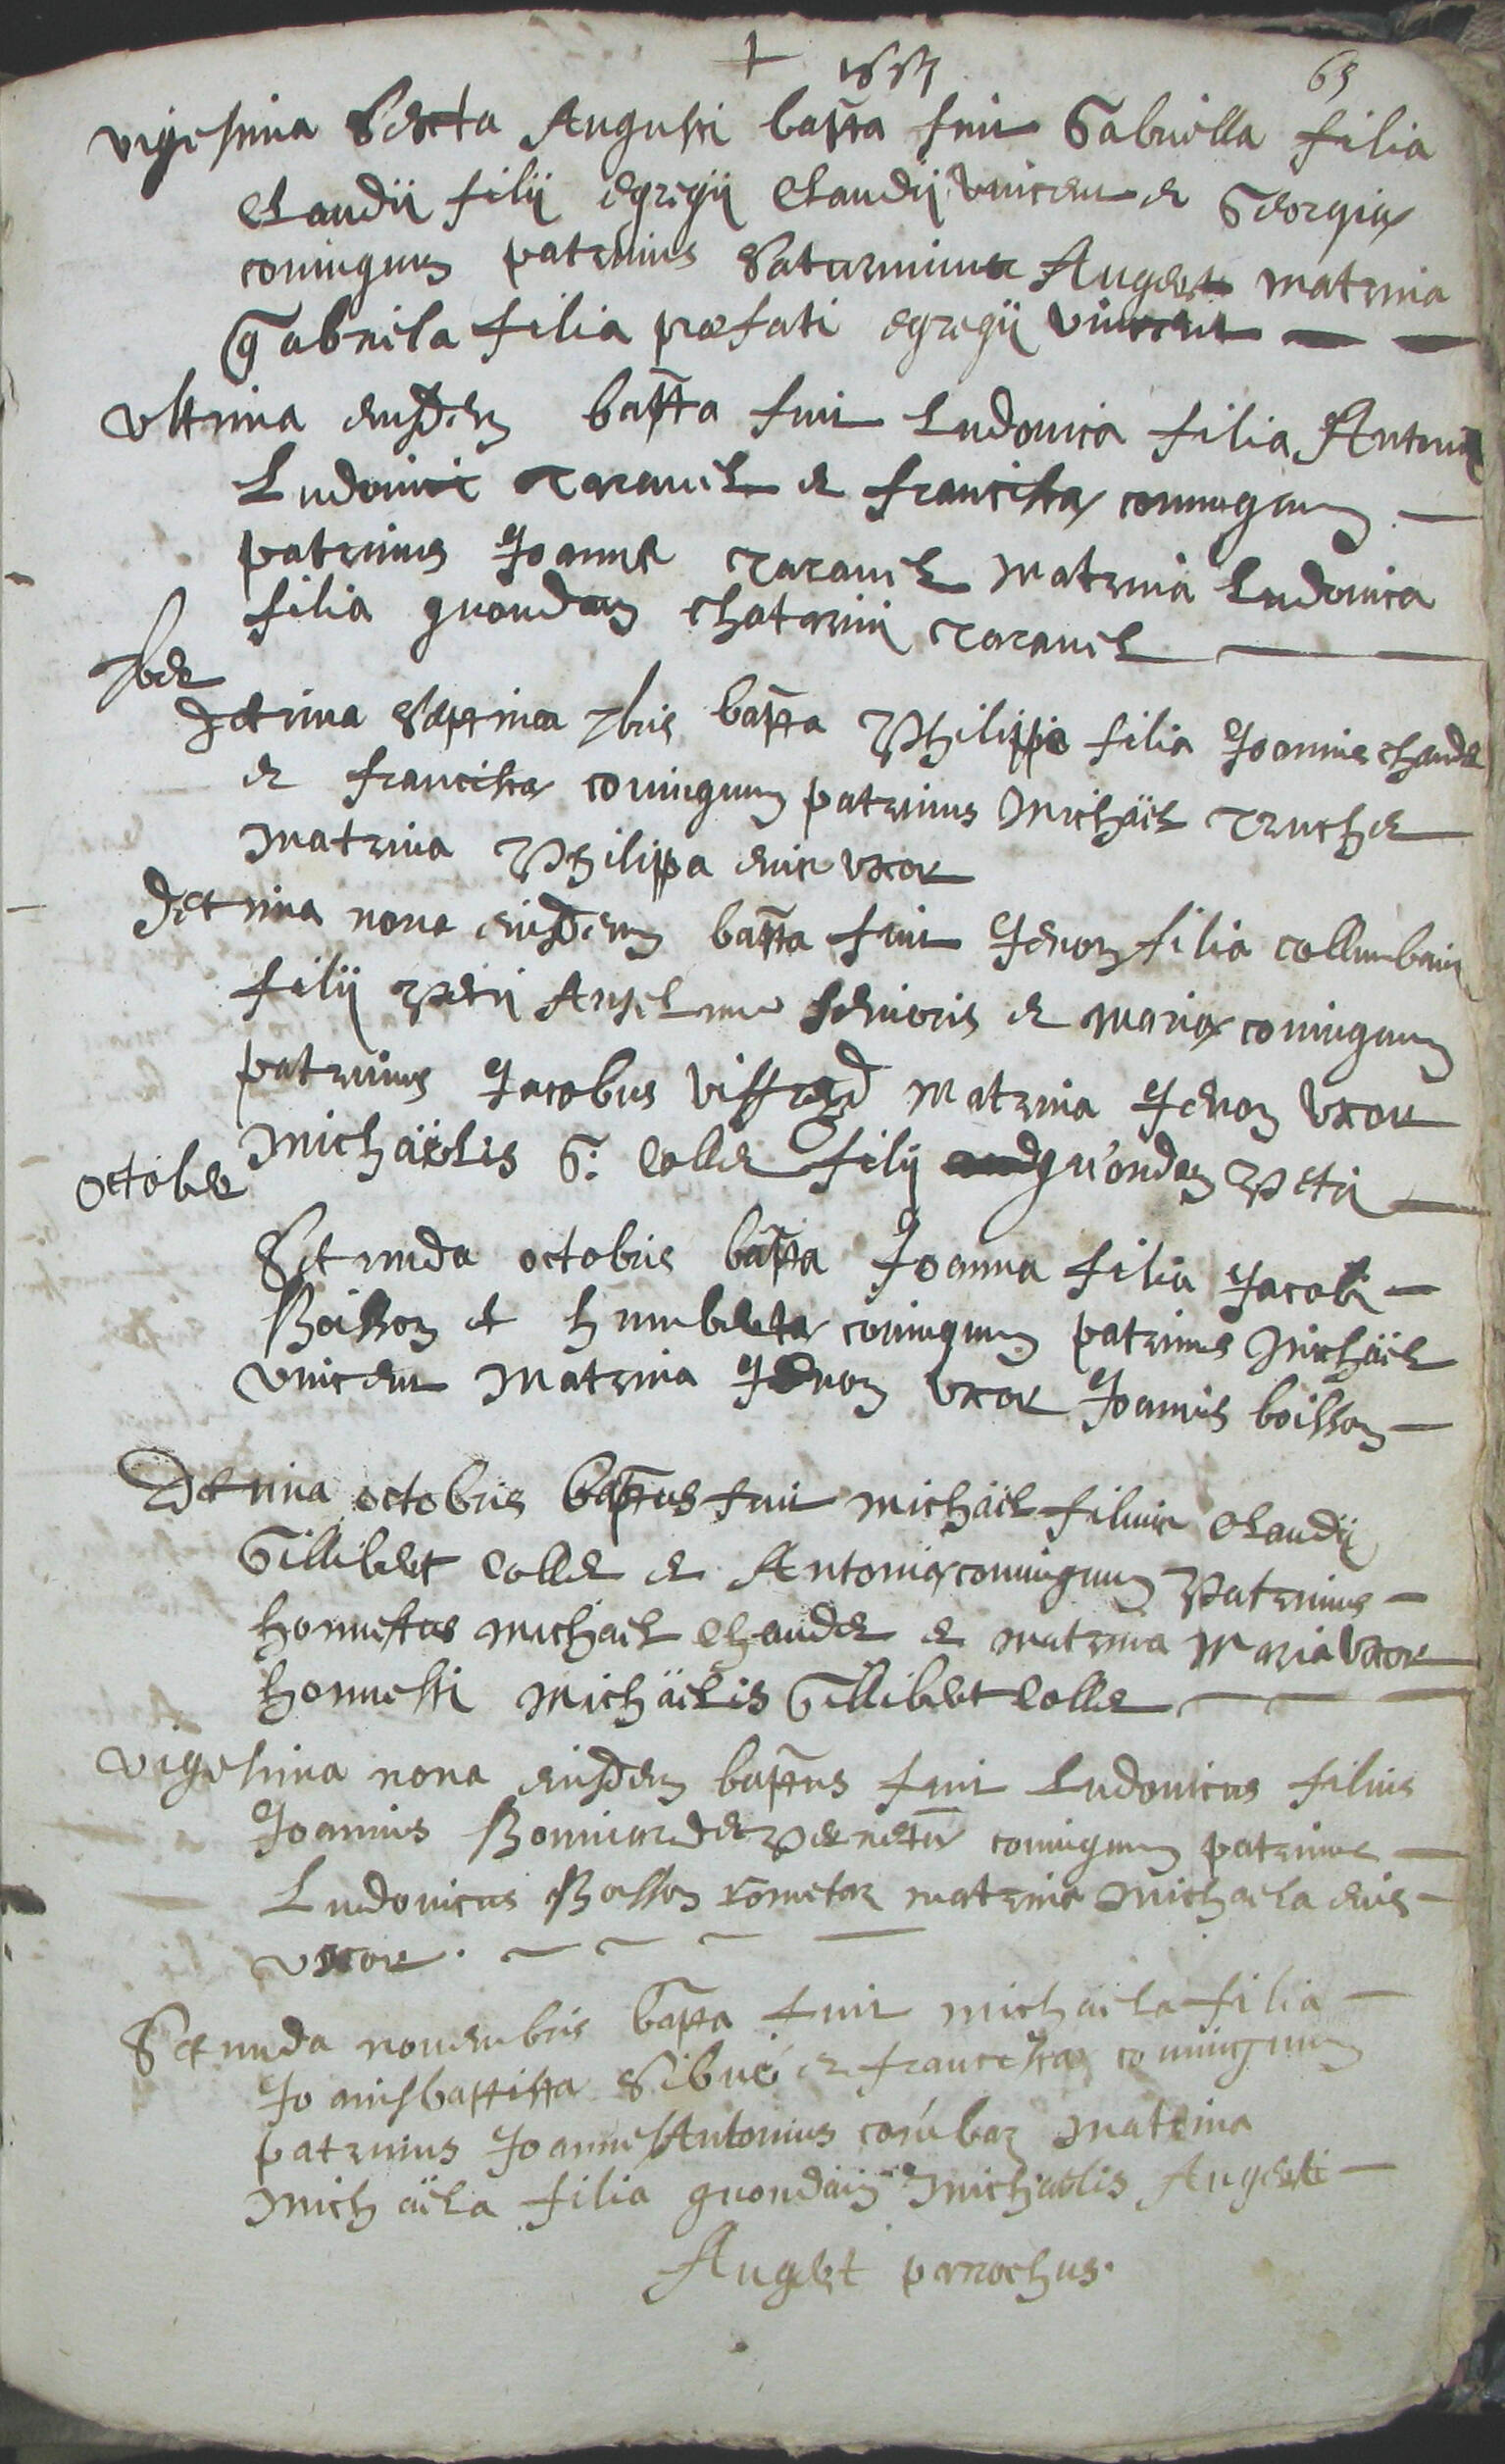 65
vigesima Sexta Augusti bapta fuit Gabriella filia
Claudii filii egregii Claudii Vincent et Georgiae
coniugum patrinus Saturninus Augert matrina
Gabriela filia praefati egregii Vincent
Ultima eiusdem bapta fuit Ludovica filia Antonii
Ludovici Taravel et franciscae coniugum
patrinus Joannes Taravel matrina Ludovica
filia quondam Chatarini Taravel
7bre
Decima septima 7bris bapta Philippa filia Joannis Chaudet
et franciscae coniugum patrinus Michäel Truchet
matrina Philippa eius uxor
Decima nona eiusdem bapta fuit Jenon filia collumbani
filii Petri Anselme senioris et mariae coniugum
patrinus Jacobus matrina Jenon uxor
Michäelis G. Collet filii quondam Petri
Octobre
Secunda octobris bapta Joanna filia Jacobi
Boisson et humbertae coniugum patrinus Michäel
Vincent matrina Jenon uxor Joannis boisson
Decima octobris baptus fuit michäel filius Claudii
Gilibert Collet et Antoniae coniugum Patrinus
honnestus michael Chaudet et matrina Maria uxor
honnesti Michäelis Gillibert Collet
Vigesima nona eiusdem baptus fuit Ludovicus filius
Joannis Bonnivard et Pernetae coniugum patrinus
Ludovicus Bosson matrina Michaela eius
uxor.
Secunda novembris bapta fuit michäela filia
Joannis baptistae Sibué et franciscae coniugum
patrinus Joannes Antonius matrina
Michäela filia quondam Michäelis Augerti
Augert parrochus.